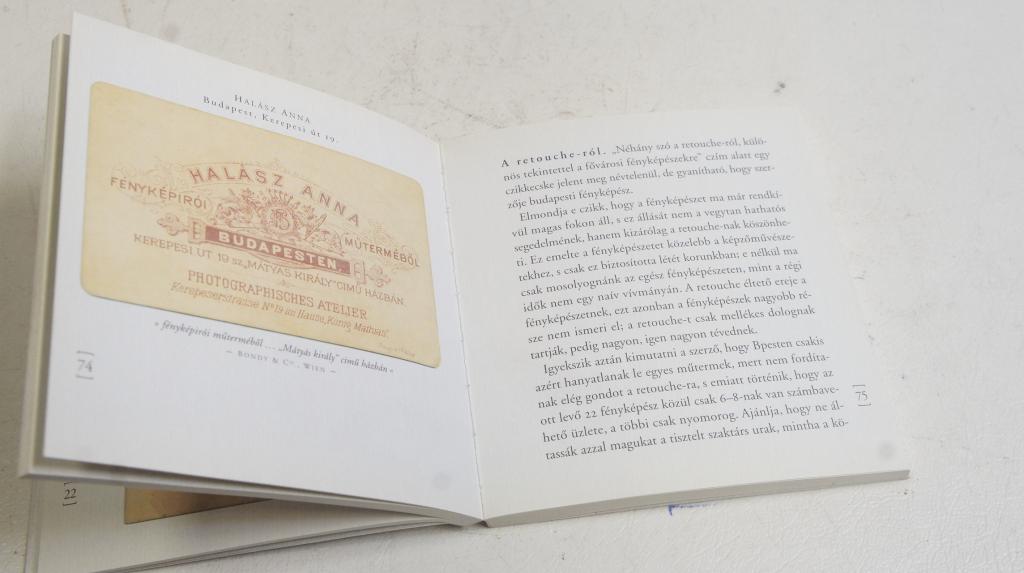 HALÁSZ ANNA
Budapest, Kerepesi út 19.
HALÁSZ ANNA
FÉNYKÉPIRÓI
MŰTERMÉBŐL
BUDAPESTEN.
KEREPESI ÚT 19 sz. „MÁTYÁS KIRÁLY" CIMŰ HÁZBAN
PHOTOGRAPHISCHES ATELIER
Kerepeserstrasse No 19 im Hause „König Mathias".
» fényképirói műterméből ... „Mátyás király" című házbán «
— BONDY & Co., WIEN —
74
22
A retouche-ról. „Néhány szó a retouche-ról, külö-
nös tekintettel a fővárosi fényképészekre" czím alatt egy
czikkecske jelent meg névtelenül, de gyanítható, hogy szer-
zője budapesti fényképész.
Elmondja e czikk, hogy a fényképészet ma már rendkí-
vül magas fokon áll, s ez állását nem a vegytan hathatós
segedelmének, hanem kizárólag a retouche-nak köszönhe-
ti. Ez emelte a fényképészetet közelebb a képzőművésze-
tekhez, s csak ez biztosította létét korunkban; e nélkül ma
csak mosolyognánk az egész fényképészeten, mint a régi
idők nem egy naív vívmányán. A retouche éltető ereje a
fényképészetnek, ezt azonban a fényképészek nagyobb ré-
sze nem ismeri el; a retouche-t csak mellékes dolognak
tartják, pedig nagyon, igen nagyon tévednek.
Igyekszik aztán kimutatni a szerző, hogy Bpesten csakis
azért hanyatlanak le egyes műtermek, mert nem fordíta-
nak elég gondot a retouche-ra, s emiatt történik, hogy az
ott levő 22 fényképész közül csak 6–8-nak van számbave-
hető üzlete, a többi csak nyomorog. Ajánlja, hogy ne ál-
tassák azzal magukat a tisztelt szaktárs urak, mintha a kö-
75